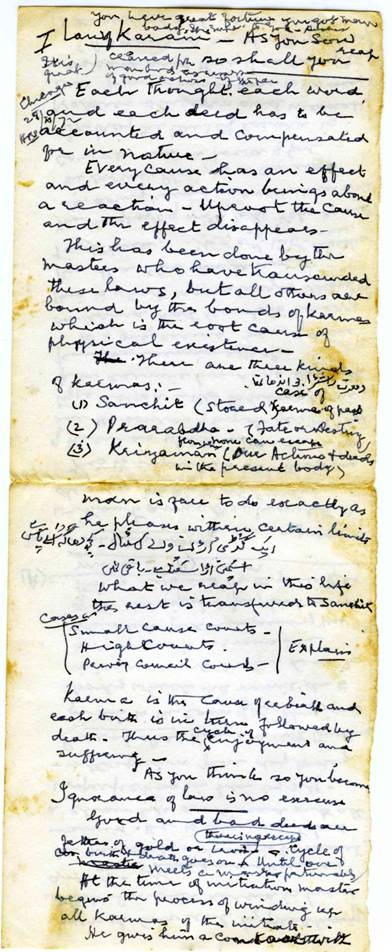 You have great fortune you got man
body
I Law of Karma — As you Sow
so shall you reap
It is
great
Chicago
Each thought, each word
and each deed has to be
accounted and compensated
for in nature —
Every cause has an effect
and every action brings about
a reaction — Uproot the Cause
and the effect disappears —
This has been done by the
Masters who have transcended
these laws, but all others are
bound by the bonds of karmas
which is the root cause of
physical existence —
There are three kinds
of karmas :-
case of
(1) Sanchit (Stored Karmas of past
(2) Prarabdha — (Fate or Destiny)
from whom none can escape
(3) Kriyaman (Our Actions & deeds
in the present body)
man is free to do exactly as
he pleases within certain limits
What we reap in this life
the rest is transferred to Sanchit
Cases
Small Cause Courts —
High Courts
Privy Council Courts —
Explain
Karma is the Cause of rebirth and
each birth is in turn followed by
death. Thus the cycle of enjoyment and
suffering —
As you think so you become
Ignorance of law is no excuse
Good and bad deeds are
fetters of gold or iron — Cycle of
birth & death goes on until one
meets a master
At the time of initiation master
begins the process of winding up
all Karmas of the initiate.
He gives him a